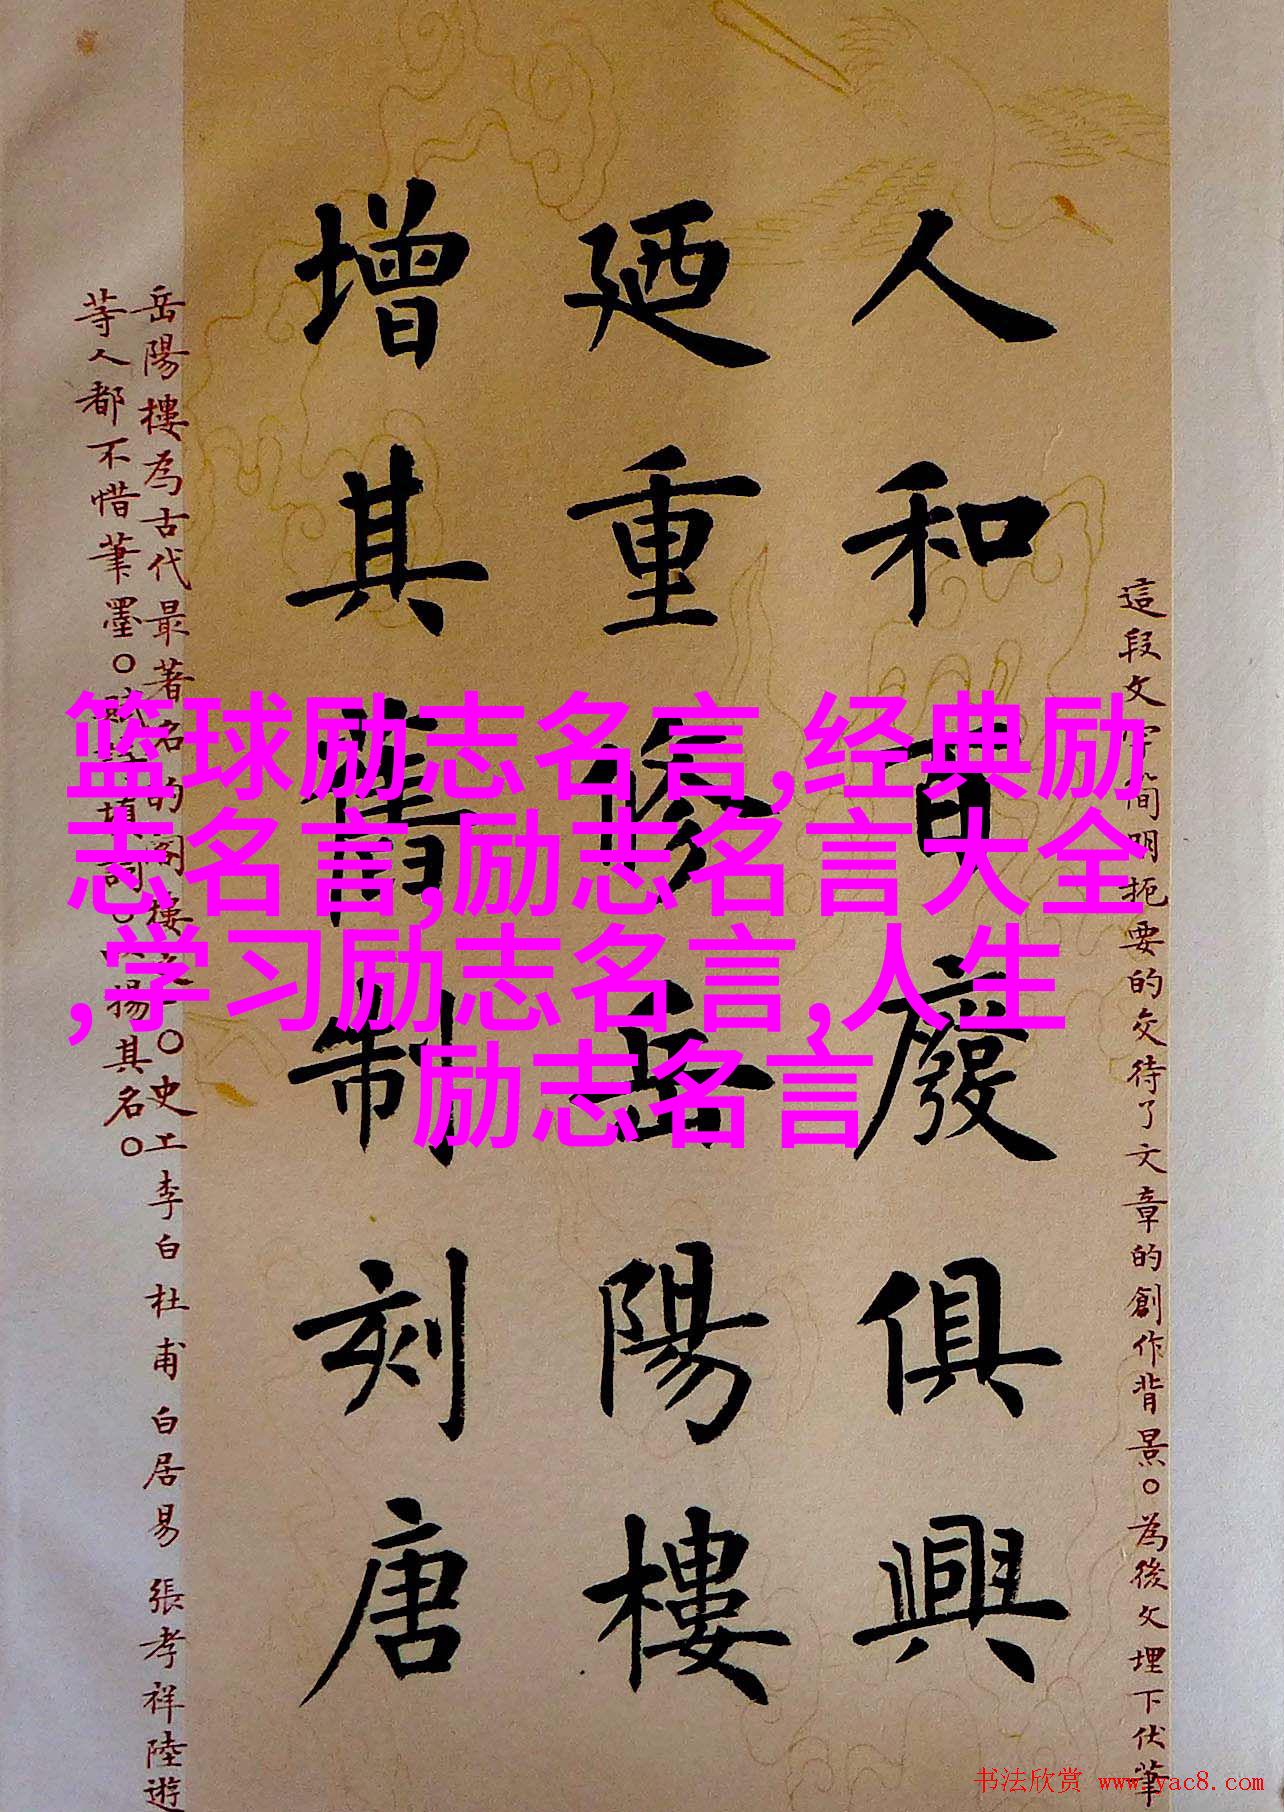 這段文字簡明扼要的交待了文章的創作背景。為後文埋下伏筆
人和百廢俱興
廼重修岳陽樓
增其舊制刻唐
岳陽樓為古代最著名的閣樓之一。史上李白杜甫白居易張孝祥陸遊
等人都不惜筆墨。賦詩填詞。以揚其名。
篮球励志名言,经典励
志名言,励志名言大全
,学习励志名言,人生
励志名言
书法欣赏 www.yac8.com